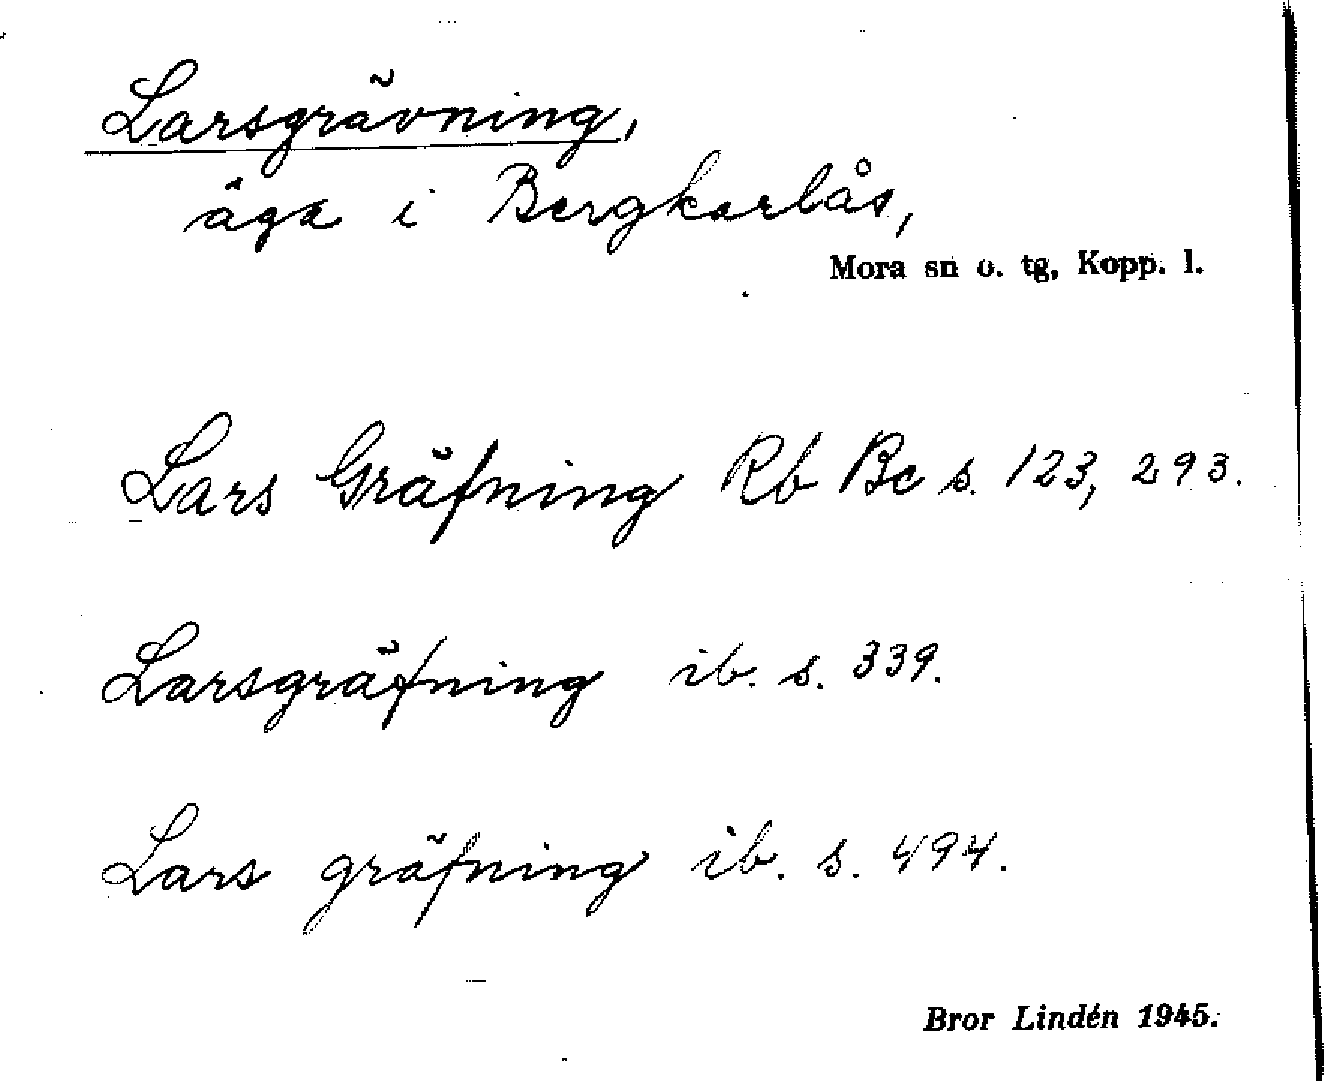 Larsgrävning,
äga i Bergkarlås,
Mora sn o. tg, Kopp. l.
Lars Gräfning Rb Bc s. 123, 293.
Larsgräfning ib. s. 339.
Lars gräfning ib. s. 494.
Bror Lindén 1945.